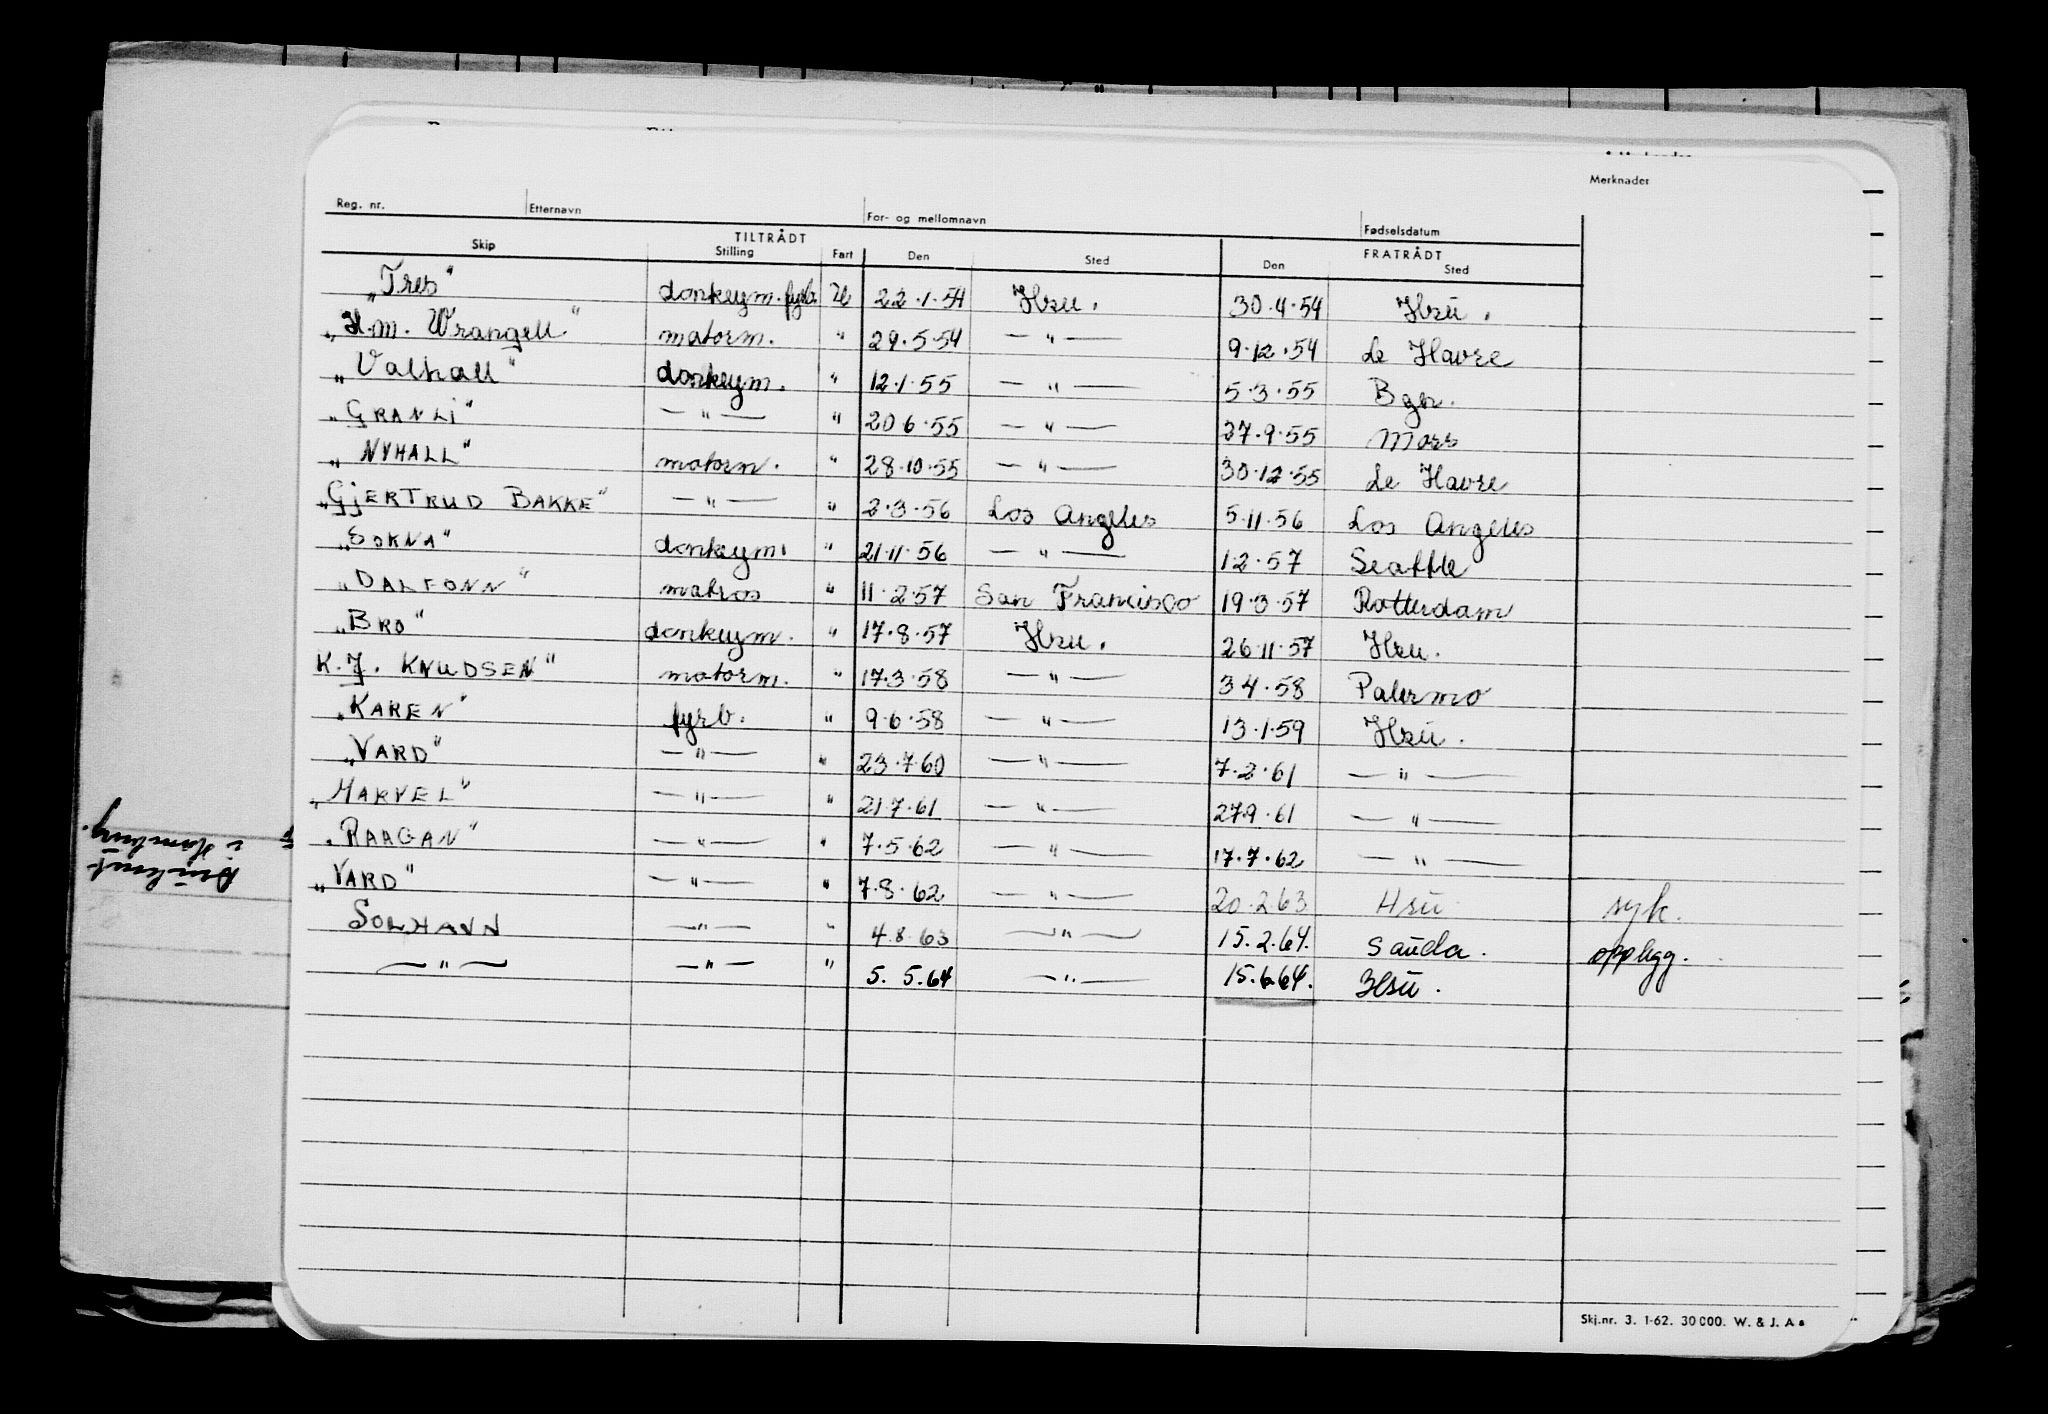 Merknader
Reg. nr. Etternavn For- og mellomnavn Fødselsdatum
TILTRÅDT FRATRÅDT
Skip Stilling Fart Den Sted Den Sted
„Tres" donkeym. fyrb. U 22.1.54 Hsu. 30.4.54 Hsu.
„H.M. Wrangell" motorm. " 29.5.54 — " — 9.12.54 Le Havre
„Valhall" donkeym. " 12.1.55 — " — 5.3.55 Bgn.
„GRANLI" — " — " 20.6.55 — " — 27.9.55 Moss
„NYHALL" motorm. " 28.10.55 — " — 30.12.55 Le Havre
„GJERTRUD BAKKE" — " — " 2.3.56 Los Angeles 5.11.56 Los Angeles
„SOKNA" donkeym. " 21.11.56 — " — 1.2.57 Seattle
„DALFONN" matros " 11.2.57 San Francisco 19.3.57 Rotterdam
„BRO" donkeym. " 17.8.57 Hsu. 26.11.57 Hsu.
K.J. KNUDSEN" motorm. " 17.3.58 — " — 3.4.58 Palermo
„KAREN" fyrb. " 9.6.58 — " — 13.1.59 Hsu.
„VARD" — " — " 23.7.60 — " — 7.2.61 — " —
„MARVEL" — " — " 21.7.61 — " — 27.9.61 — " —
„RAAGAN" — " — " 7.5.62 — " — 17.7.62 — " —
„VARD" — " — " 7.8.62 — " — 20.2.63 Hsu syk.
SOLHAVN — " — " 4.8.63 — " — 15.2.64. Sauda. opplegg.
— " — — " — " 5.5.64 — " — 15.6.64. Hsu.
i Hamburg.
Skj.nr. 3. 1-62. 30 000. W. & J. A s